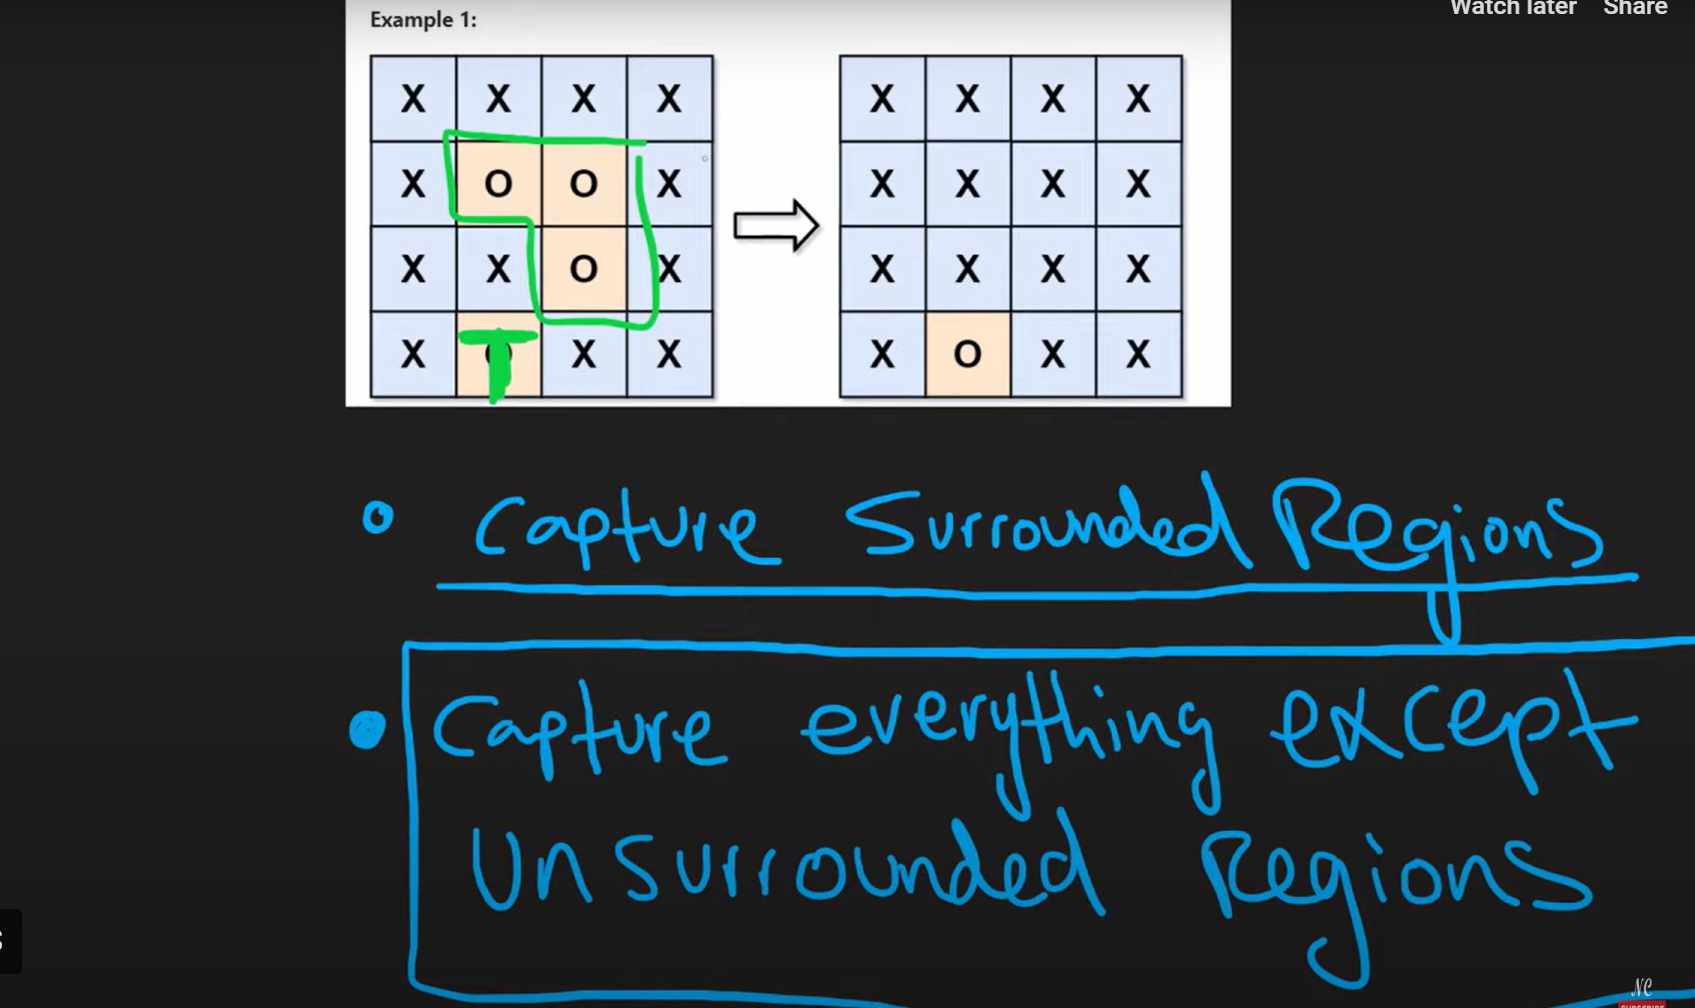 Watch later Share
Example 1:
X X X X X X X X
X O O X X X X X
X X O X X X X X
X T X X X O X X
Capture Surrounded Regions
Capture everything except
Unsurrounded Regions
S
NC
SUBSCRIBE